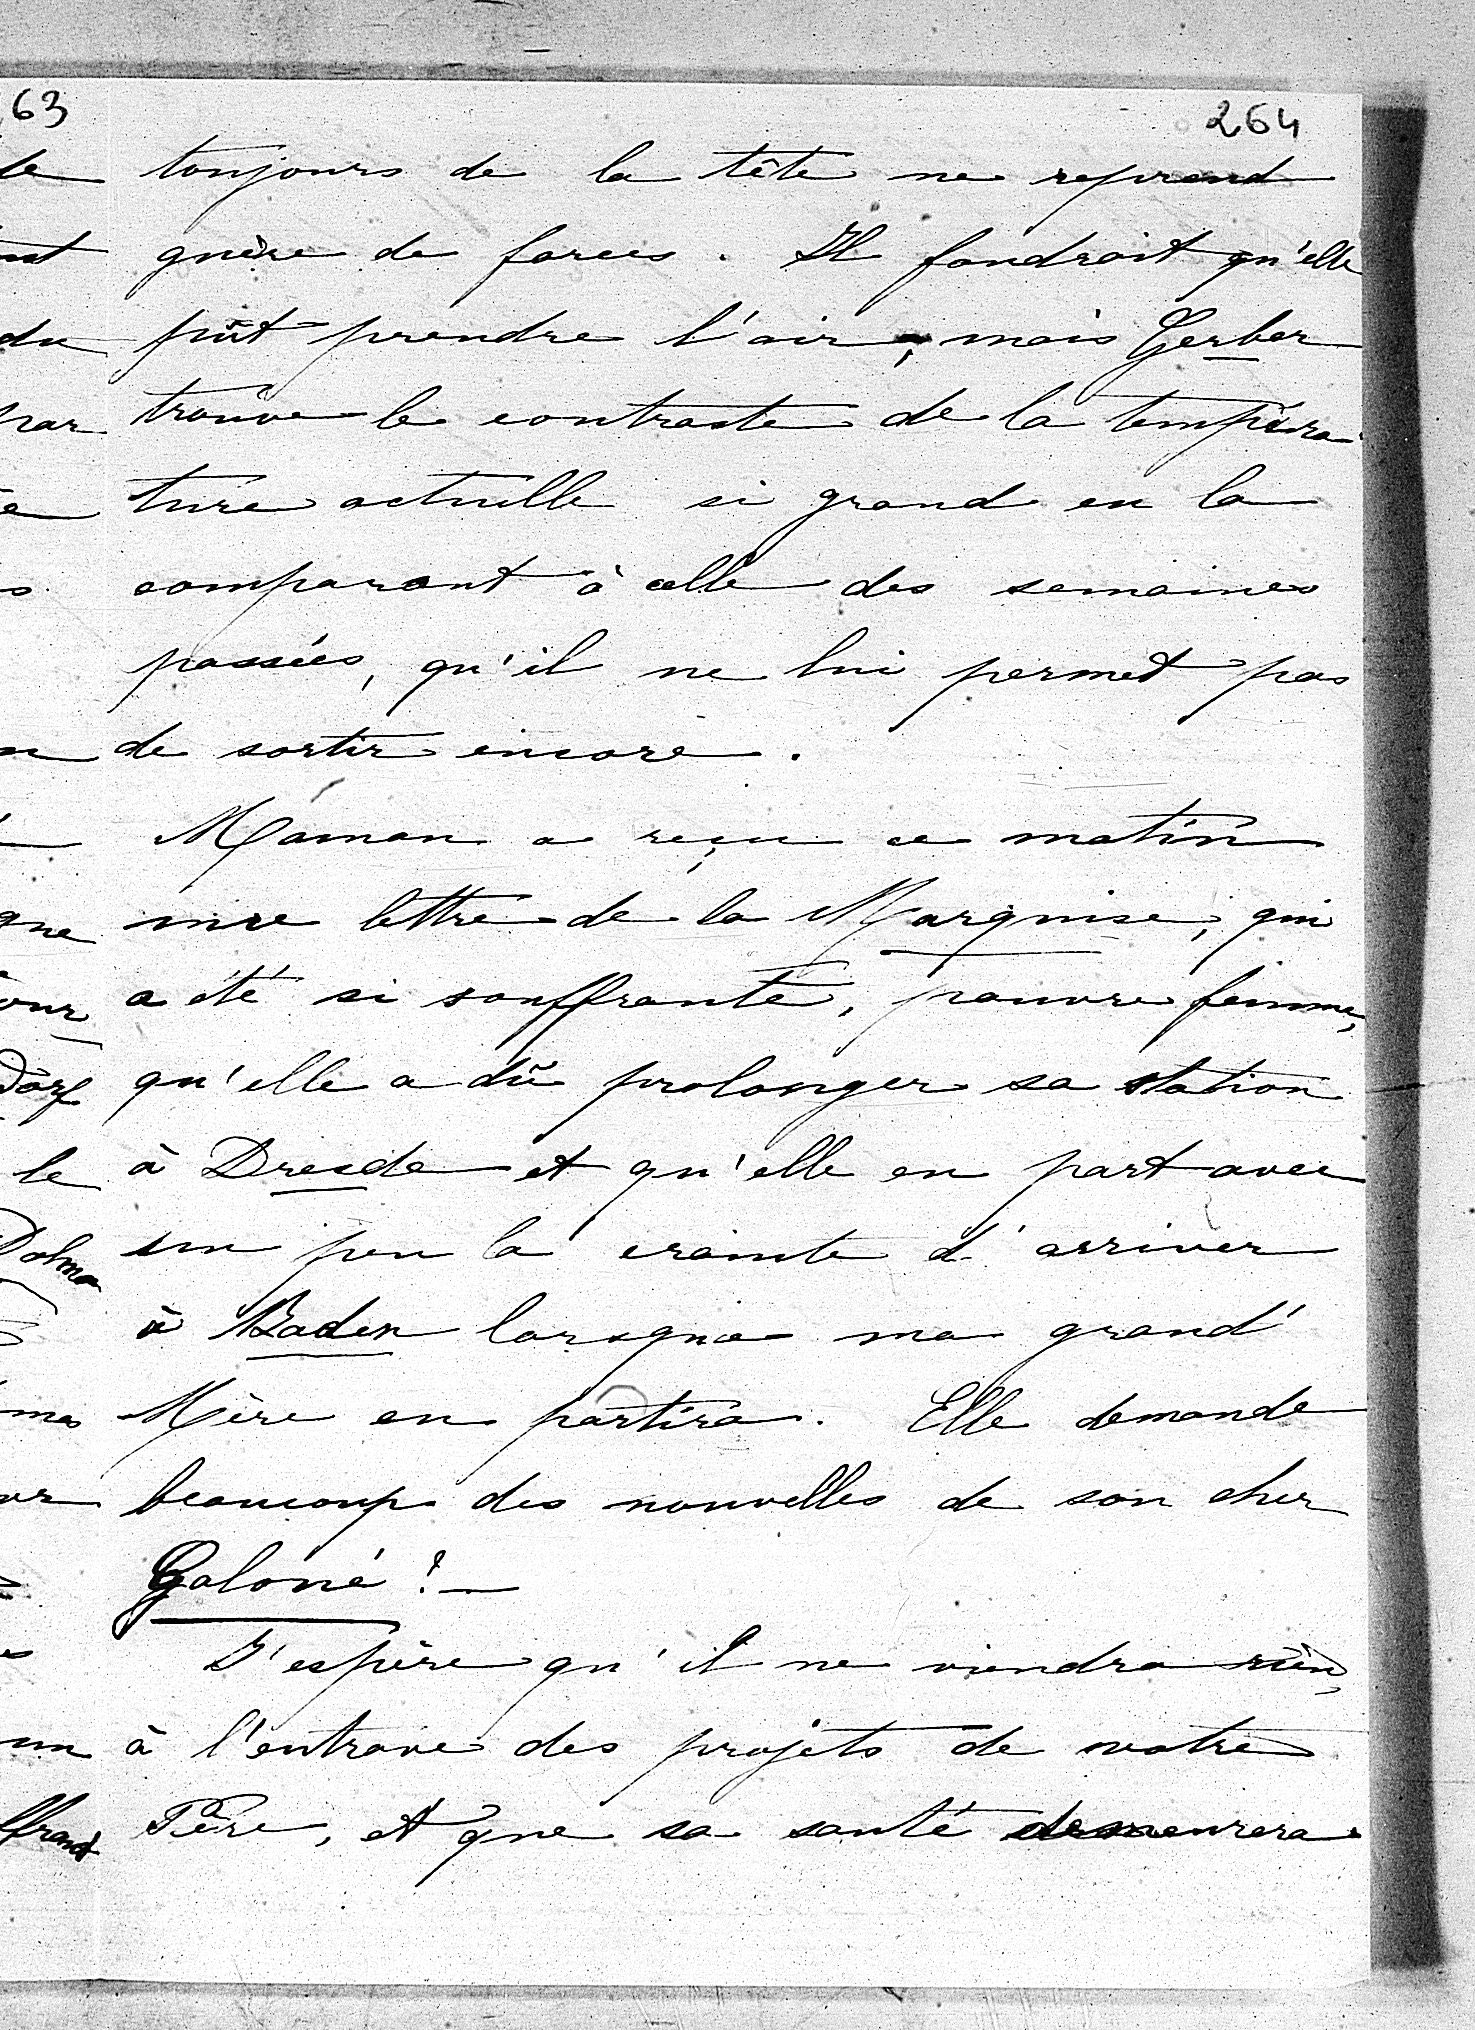 63
264
toujours de la tête ne reprend
guère de forces. Il faudrait qu'elle
pût prendre l'air, mais Gerber
trouve le contraste de la tempéra-
ture actuelle si grand en la
comparant à celle des semaines
passées, qu'il ne lui permet pas
de sortir encore.
Maman a reçu ce matin
une lettre de la Marquise, qui
a été si souffrante, pauvre femme,
qu'elle a dû prolonger sa station
à Dresde et qu'elle en part avec
un peu la crainte d'arriver
à Baden lorsque ma grand'
Mère en partira. Elle demande
beaucoup des nouvelles de son cher
Galoné! —
J'espère qu'il ne viendra rien
à l'entrave des projets de votre
Père, et que sa santé demeurera